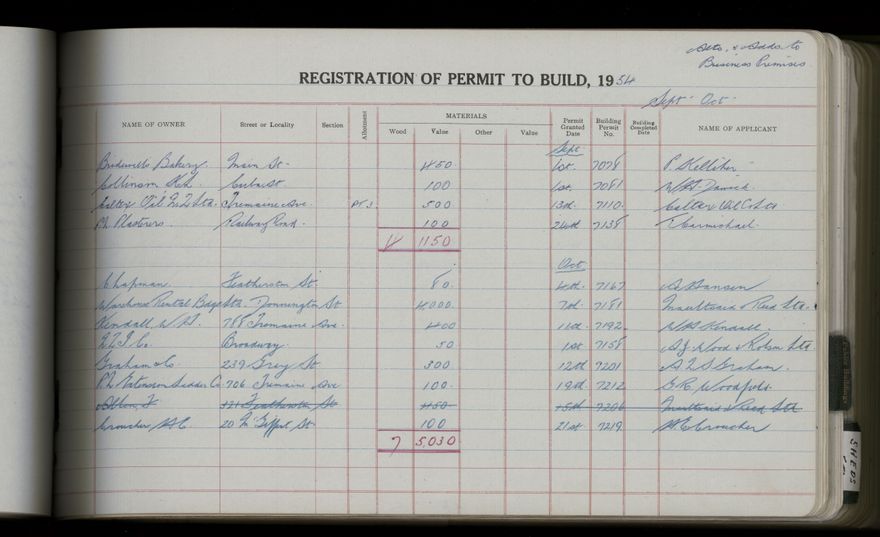 Alts, & Adds to
Business Premises
REGISTRATION OF PERMIT TO BUILD, 1954
Sept - Oct -
NAME OF OWNER Street or Locality Section Allotment MATERIALS Wood Value Other Value Permit Granted Date Building Permit No. Building Completed Date NAME OF APPLICANT
Sept
Main St 450 1st. 7078 P. Kelliher
Collinson 100 1st. 7081
Caltex Oil N.Z Ltd. Tremaine Ave. Pt 3 500 13th. 7110. Caltex Oil Co Ltd
P.N. Plasterers. Railway Road. 100 24th 7138 Carmichael
4 1150
Oct
Chapman. Featherston St. 80. 4th. 7167 Hansen
Warehouse Rental Ltd. Donnington St 4000. 7th. 7181 Reid Ltd.
Kendall W 788 Tremaine Ave. 400 11th. 7192. Kendall.
Broadway. 50 1st 7158 A.J Wood & Robson Ltd
Graham & Co. 239 Grey St 300 12th 7201 Graham.
706 Tremaine Ave 100. 19th 7212
Allen, F 321 Featherston St 450 15th 7206 Reid Ltd
Croucher 20 St 100 21st 7219. Croucher
7 5030
SHEDS